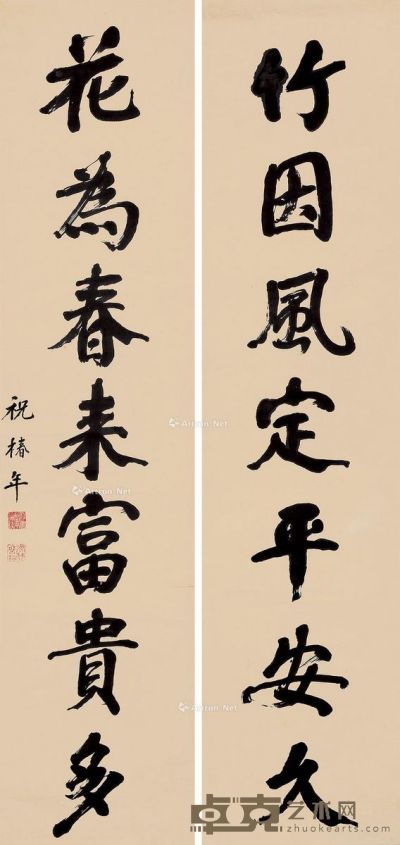 竹因風定平安久
花為春来富貴多
祝椿年
Artron.Net
Artron.Net
Artron.Net
Artron.Net
卓克艺术网
zhuokearts.com